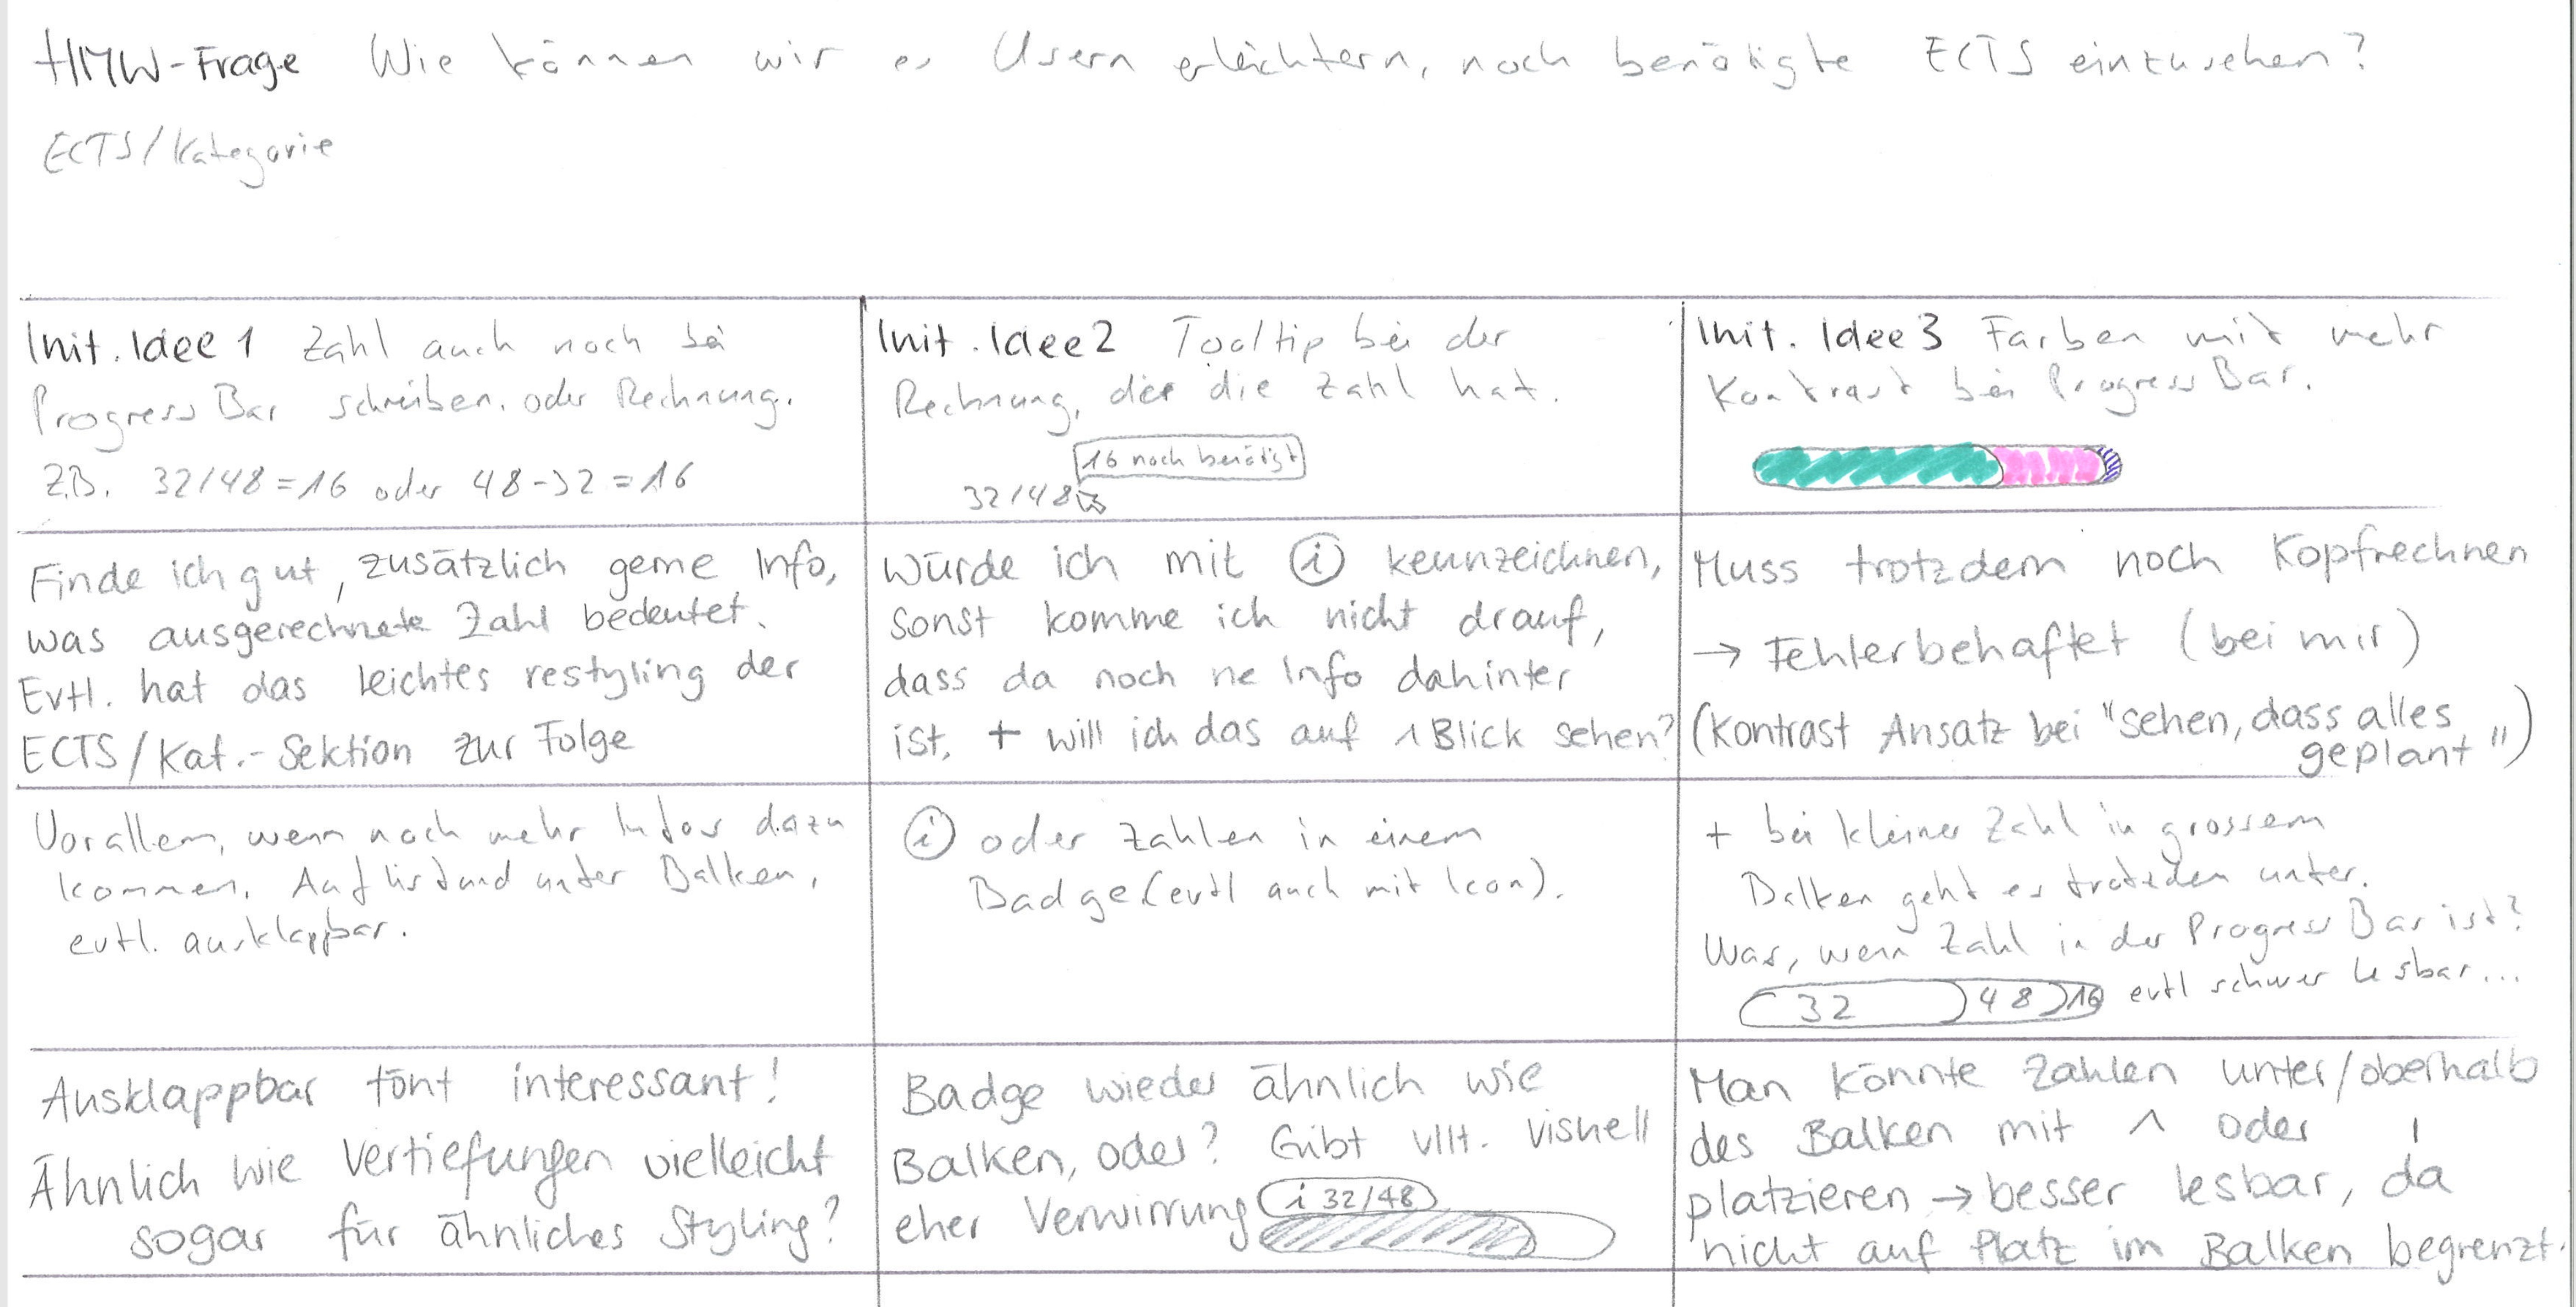 HMW-Frage Wie können wir es Usern erleichtern, noch benötigte ECTS einzusehen?
ECTS/Kategorie
Init. Idee 1 Zahl auch noch bei
Progress Bar schreiben. oder Rechnung.
Z.B. 32/48=16 oder 48-32=16
Init. Idee 2 Tooltip bei der
Rechnung, der die Zahl hat.
16 noch benötigt
32/48
Init. Idee 3 Farben mit mehr
Kontrast bei Progress Bar.
Finde ich gut, zusätzlich gerne Info,
was ausgerechnete Zahl bedeutet.
Evtl. hat das leichtes restyling der
ECTS/Kat.-Sektion zur Folge
Würde ich mit (i) kennzeichnen,
sonst komme ich nicht drauf,
dass da noch ne Info dahinter
ist, + will ich das auf 1 Blick sehen?
Muss trotzdem noch Kopfrechnen
→ Fehlerbehaftet (bei mir)
(Kontrast Ansatz bei "sehen, dass alles
geplant")
Vorallem, wenn noch mehr Infos dazu
kommen. Auflistung unter Balken,
evtl. ausklappbar.
(i) oder Zahlen in einem
Badge (evtl auch mit Icon).
+ bei kleiner Zahl in grossem
Balken geht es trotzdem unter.
Was, wenn Zahl in der Progress Bar ist?
32 48 16 evtl schwer lesbar...
Ausklappbar tönt interessant!
Ähnlich wie Vertiefungen vielleicht
sogar für ähnliches Styling?
Badge wieder ähnlich wie
Balken, oder? Gibt vllt. visuell
eher Verwirrung
i 32/48
Man könnte Zahlen unter/oberhalb
des Balken mit ^ oder |
platzieren → besser lesbar, da
nicht auf Platz im Balken begrenzt.